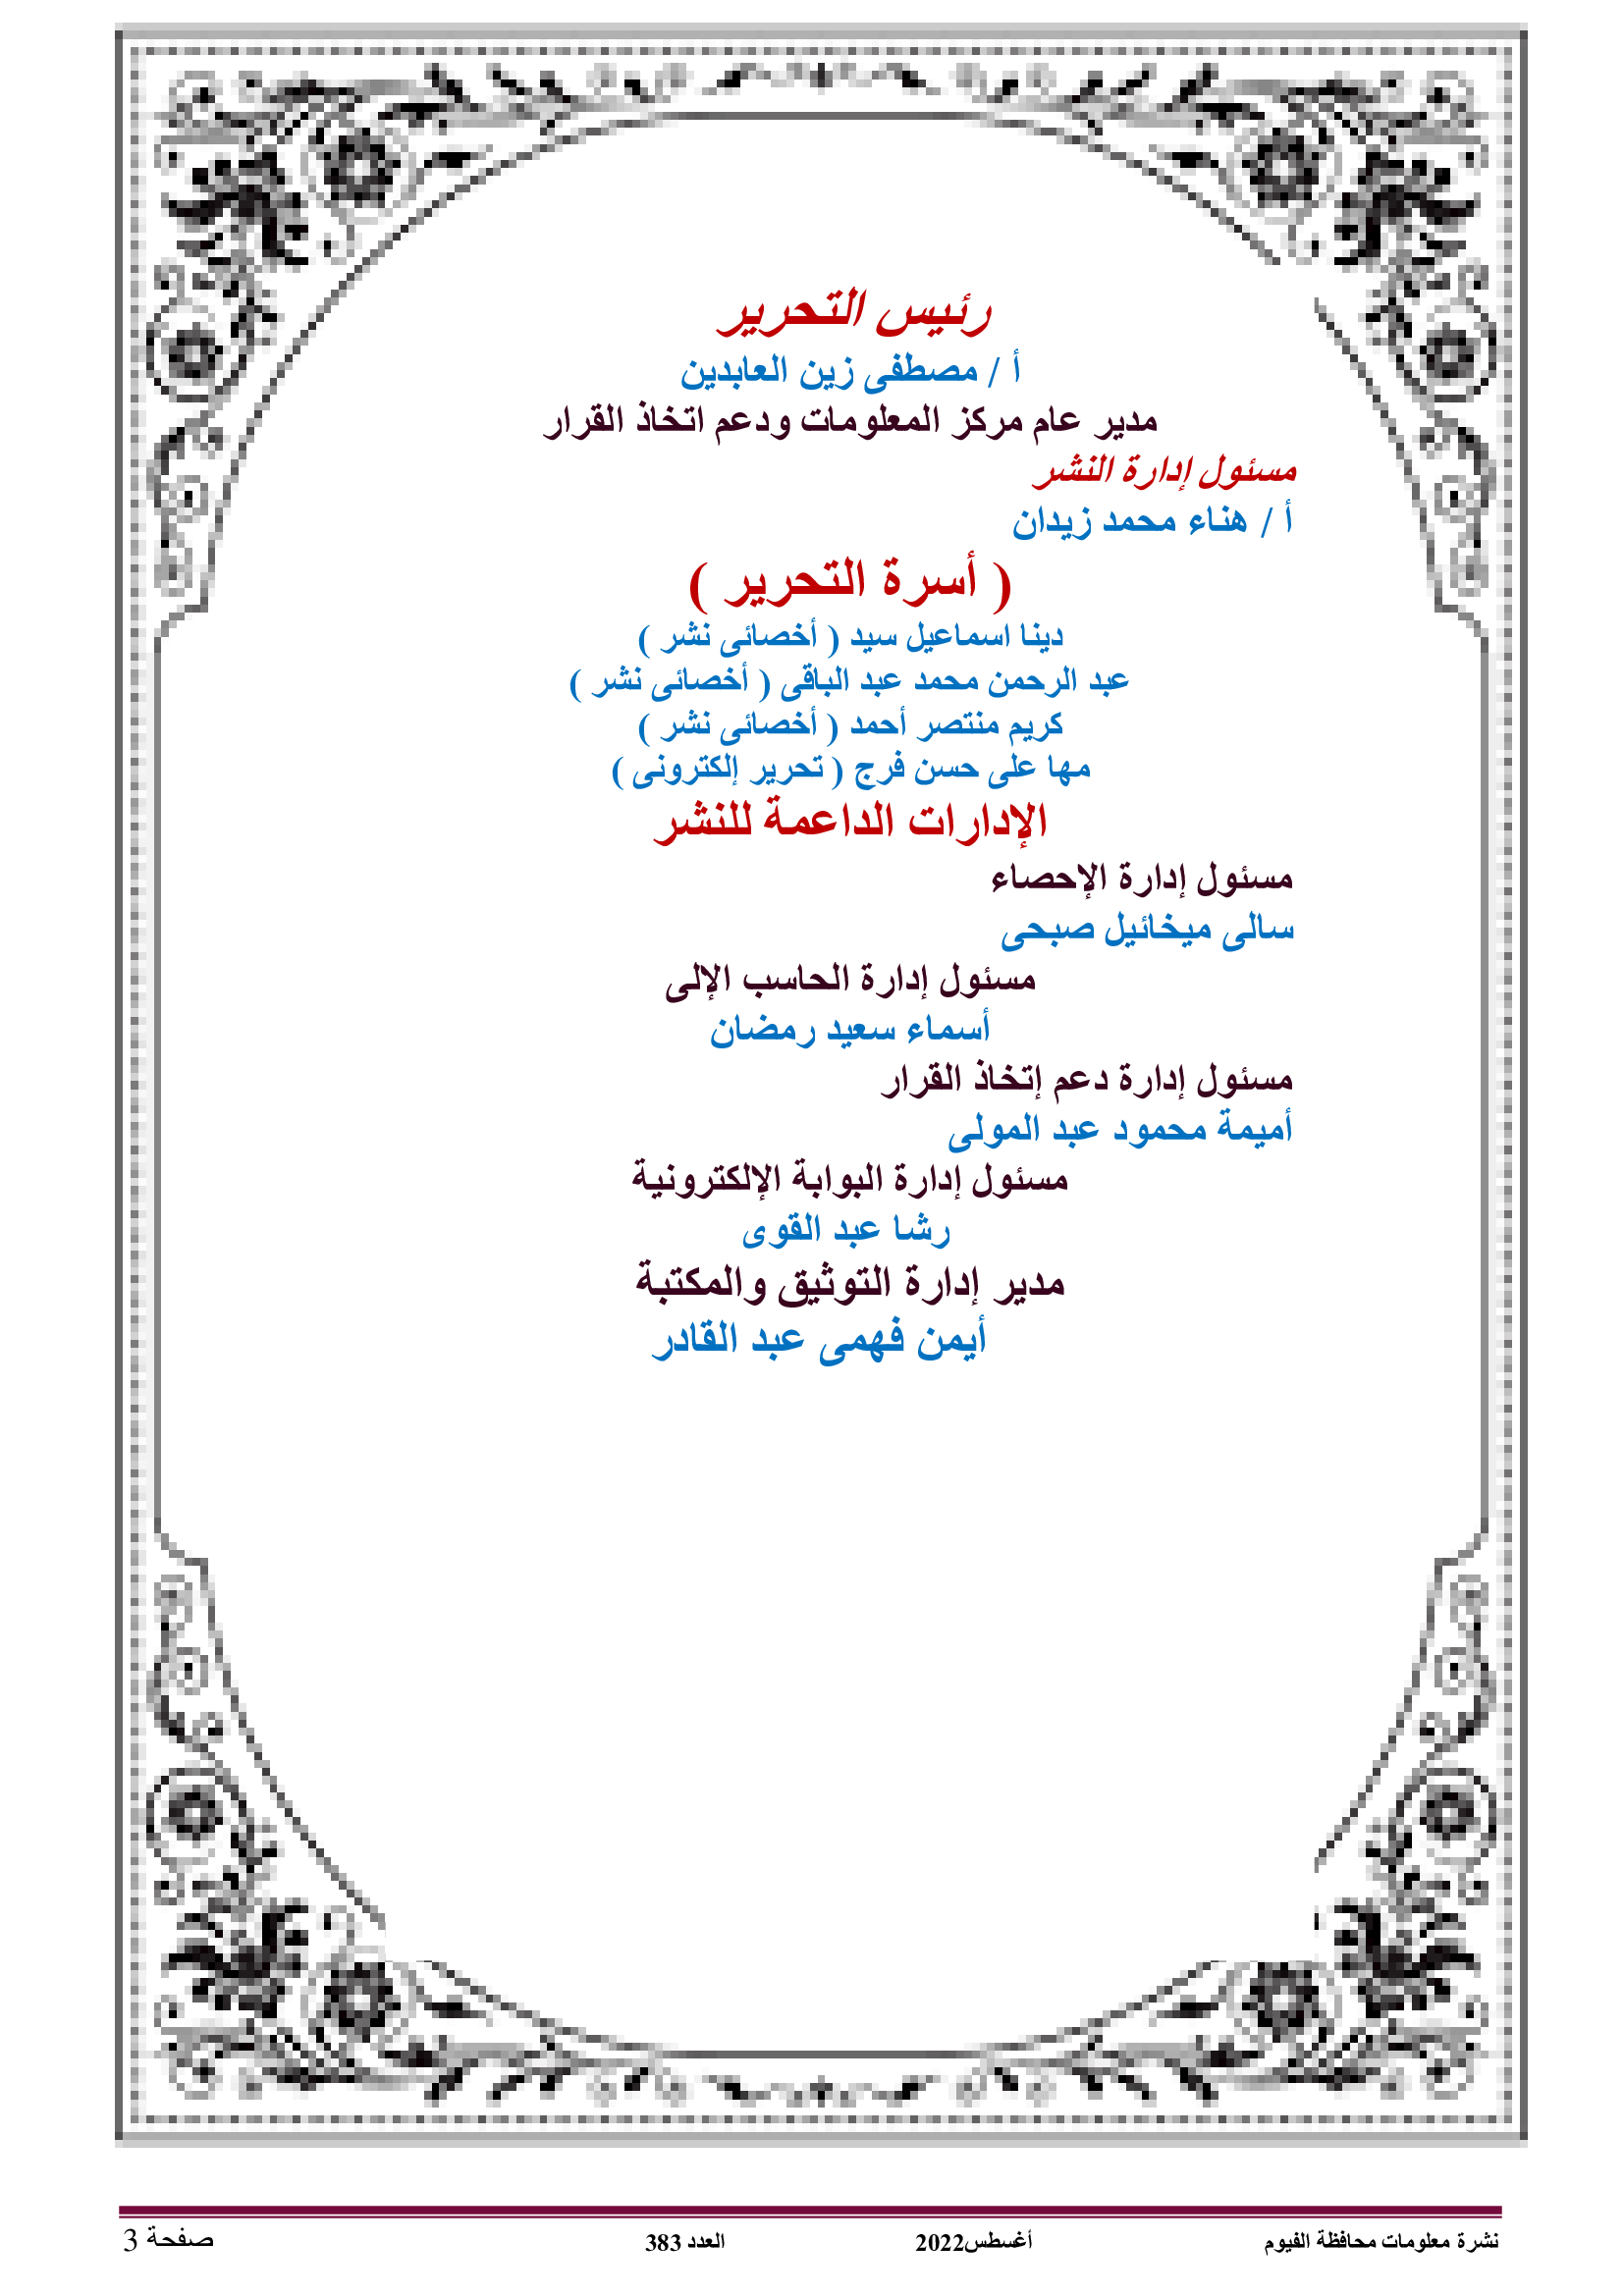 رئيس التحرير
أ / مصطفى زين العابدين
مدير عام مركز المعلومات ودعم اتخاذ القرار
مسئول إدارة النشر
أ / هناء محمد زيدان
( أسرة التحرير )
دينا اسماعيل سيد ( أخصائى نشر )
عبد الرحمن محمد عبد الباقى ( أخصائى نشر )
كريم منتصر أحمد ( أخصائى نشر )
مها على حسن فرج ( تحرير إلكترونى )
الإدارات الداعمة للنشر
مسئول إدارة الإحصاء
سالى ميخائيل صبحى
مسئول إدارة الحاسب الإلى
أسماء سعيد رمضان
مسئول إدارة دعم إتخاذ القرار
أميمة محمود عبد المولى
مسئول إدارة البوابة الإلكترونية
رشا عبد القوى
مدير إدارة التوثيق والمكتبة
أيمن فهمى عبد القادر
نشرة معلومات محافظة الفيوم أغسطس2022 العدد 383 صفحة 3